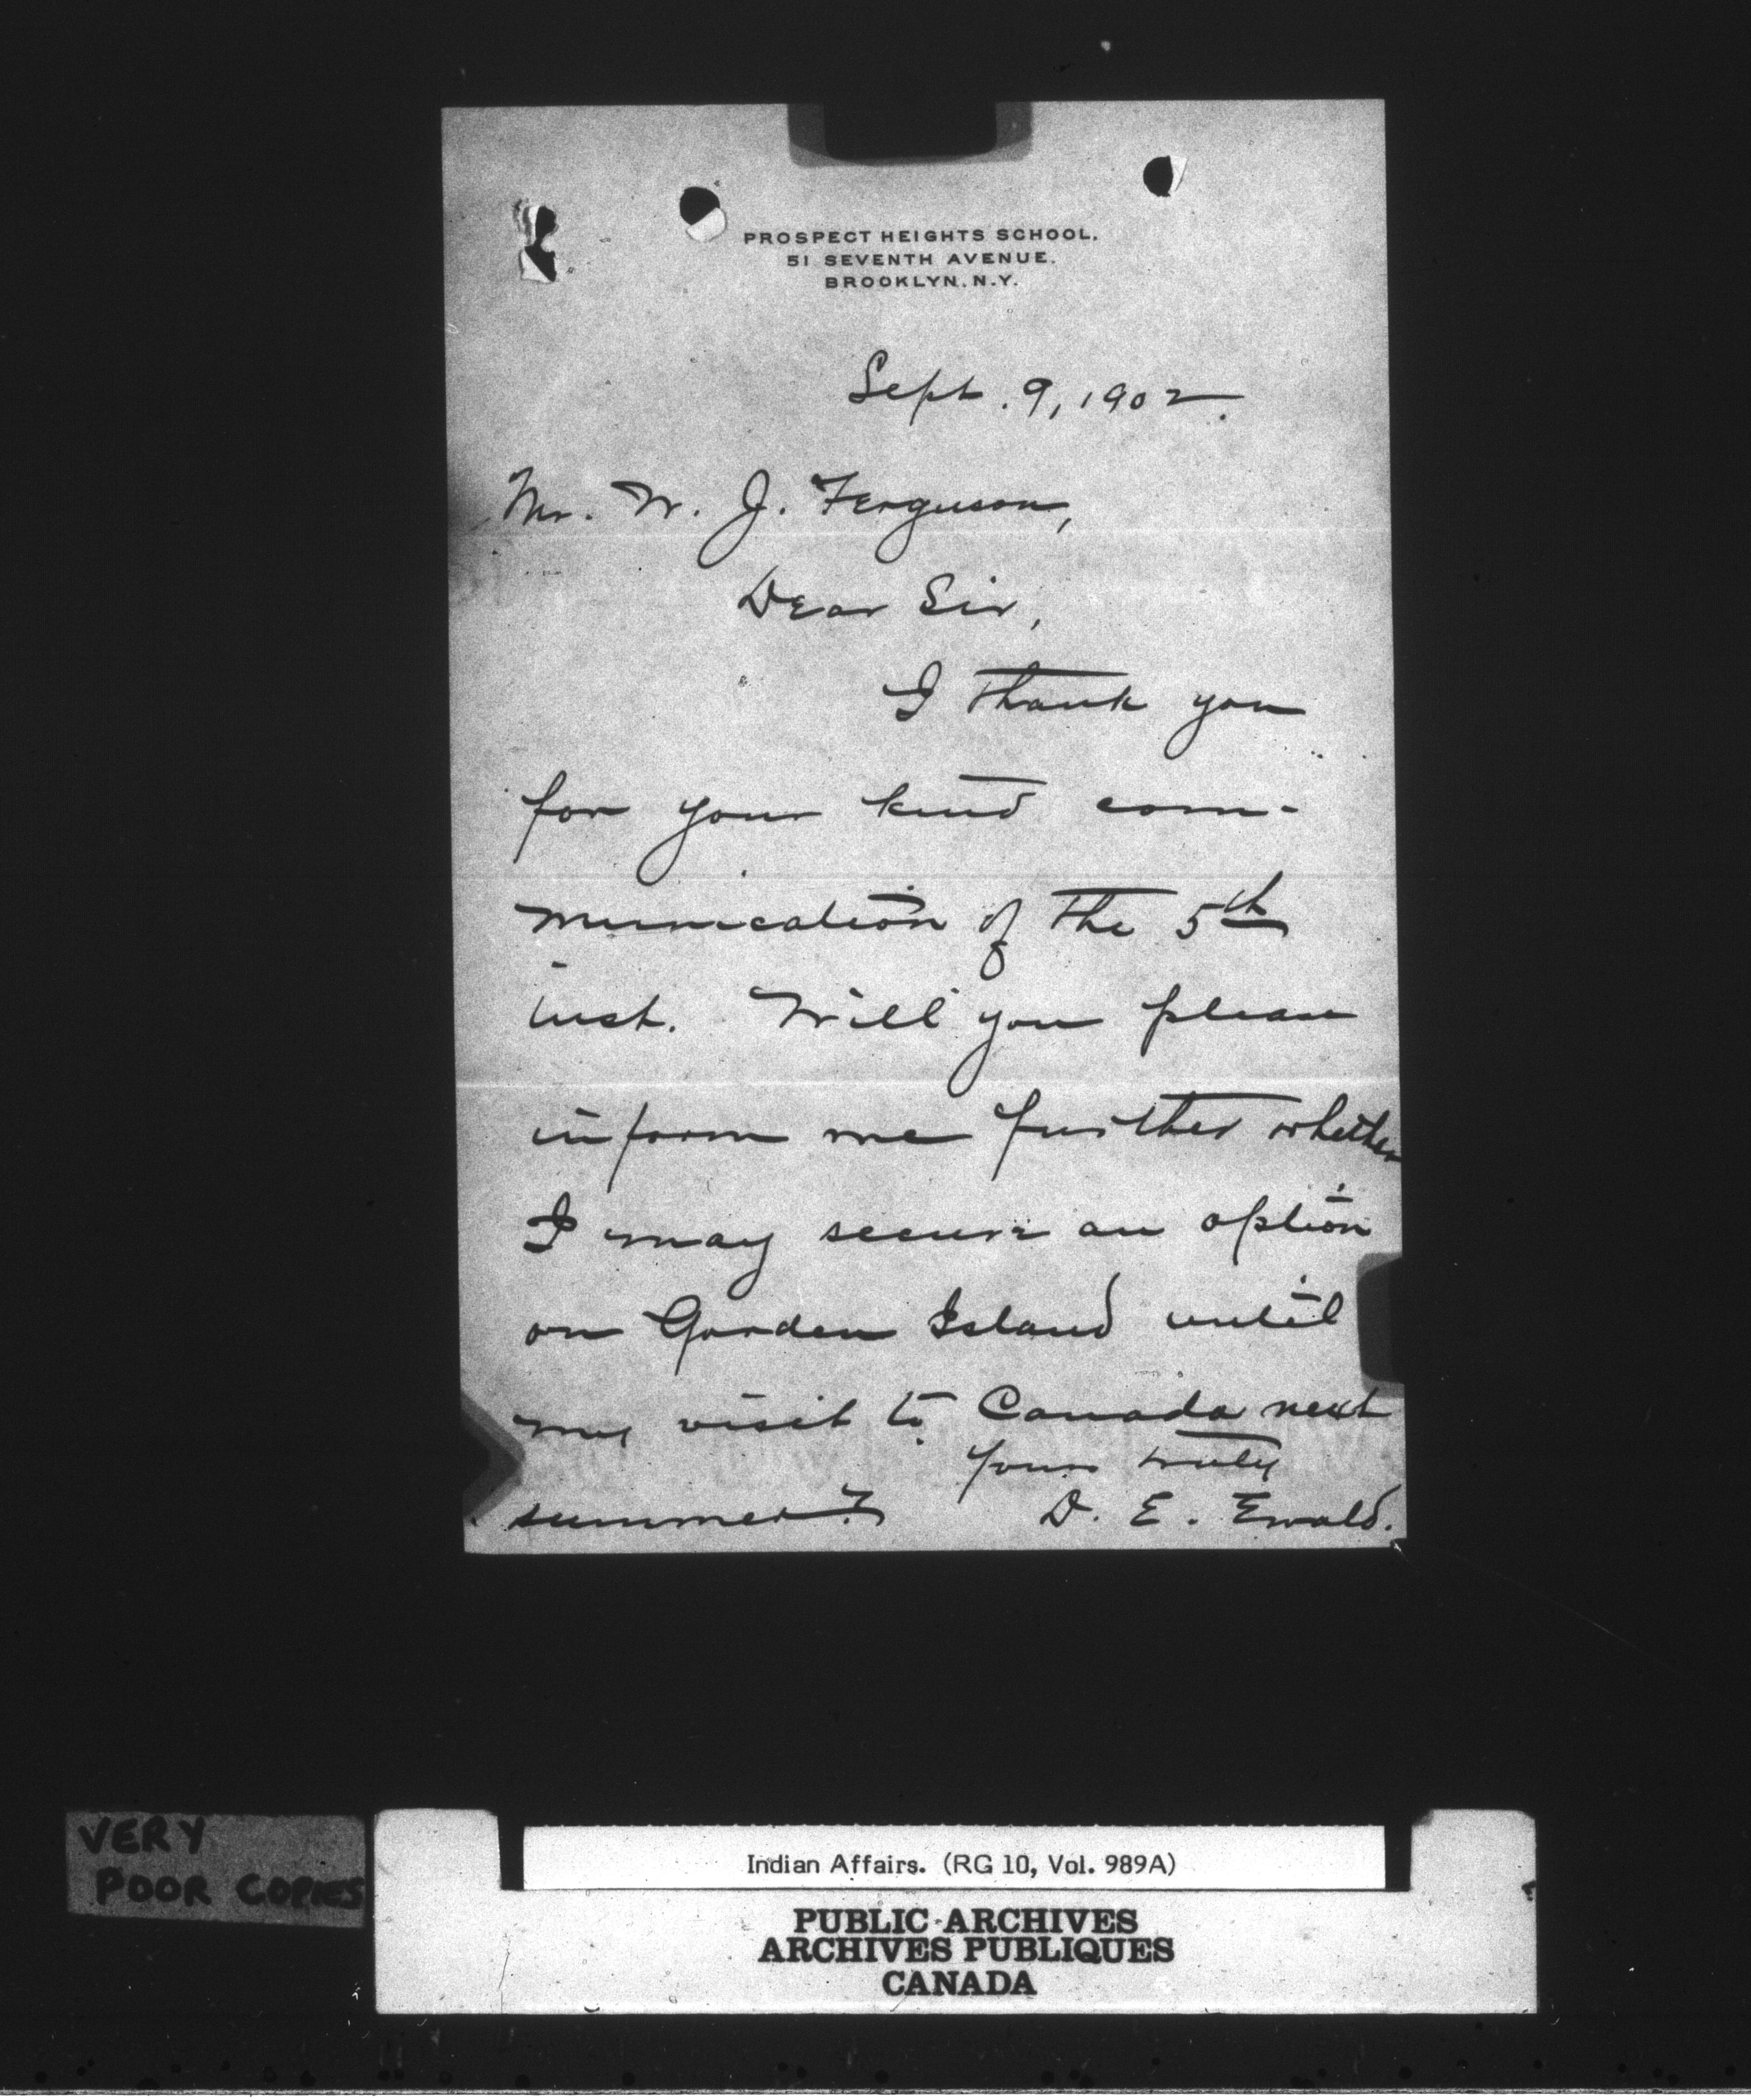 PROSPECT HEIGHTS SCHOOL,
51 SEVENTH AVENUE.
BROOKLYN, N.Y.
Sept. 9, 1902.
Mr. W. J. Ferguson,
Dear Sir,
I thank you
for your kind com-
munication of the 5th
inst. Will you please
inform me further whether
I may secure an option
on Garden Island until
my visit to Canada next
summer?
Yours truly
D. E. Ewald.
VERY
POOR COPIES
Indian Affairs. (RG 10, Vol. 989A)
PUBLIC ARCHIVES
ARCHIVES PUBLIQUES
CANADA